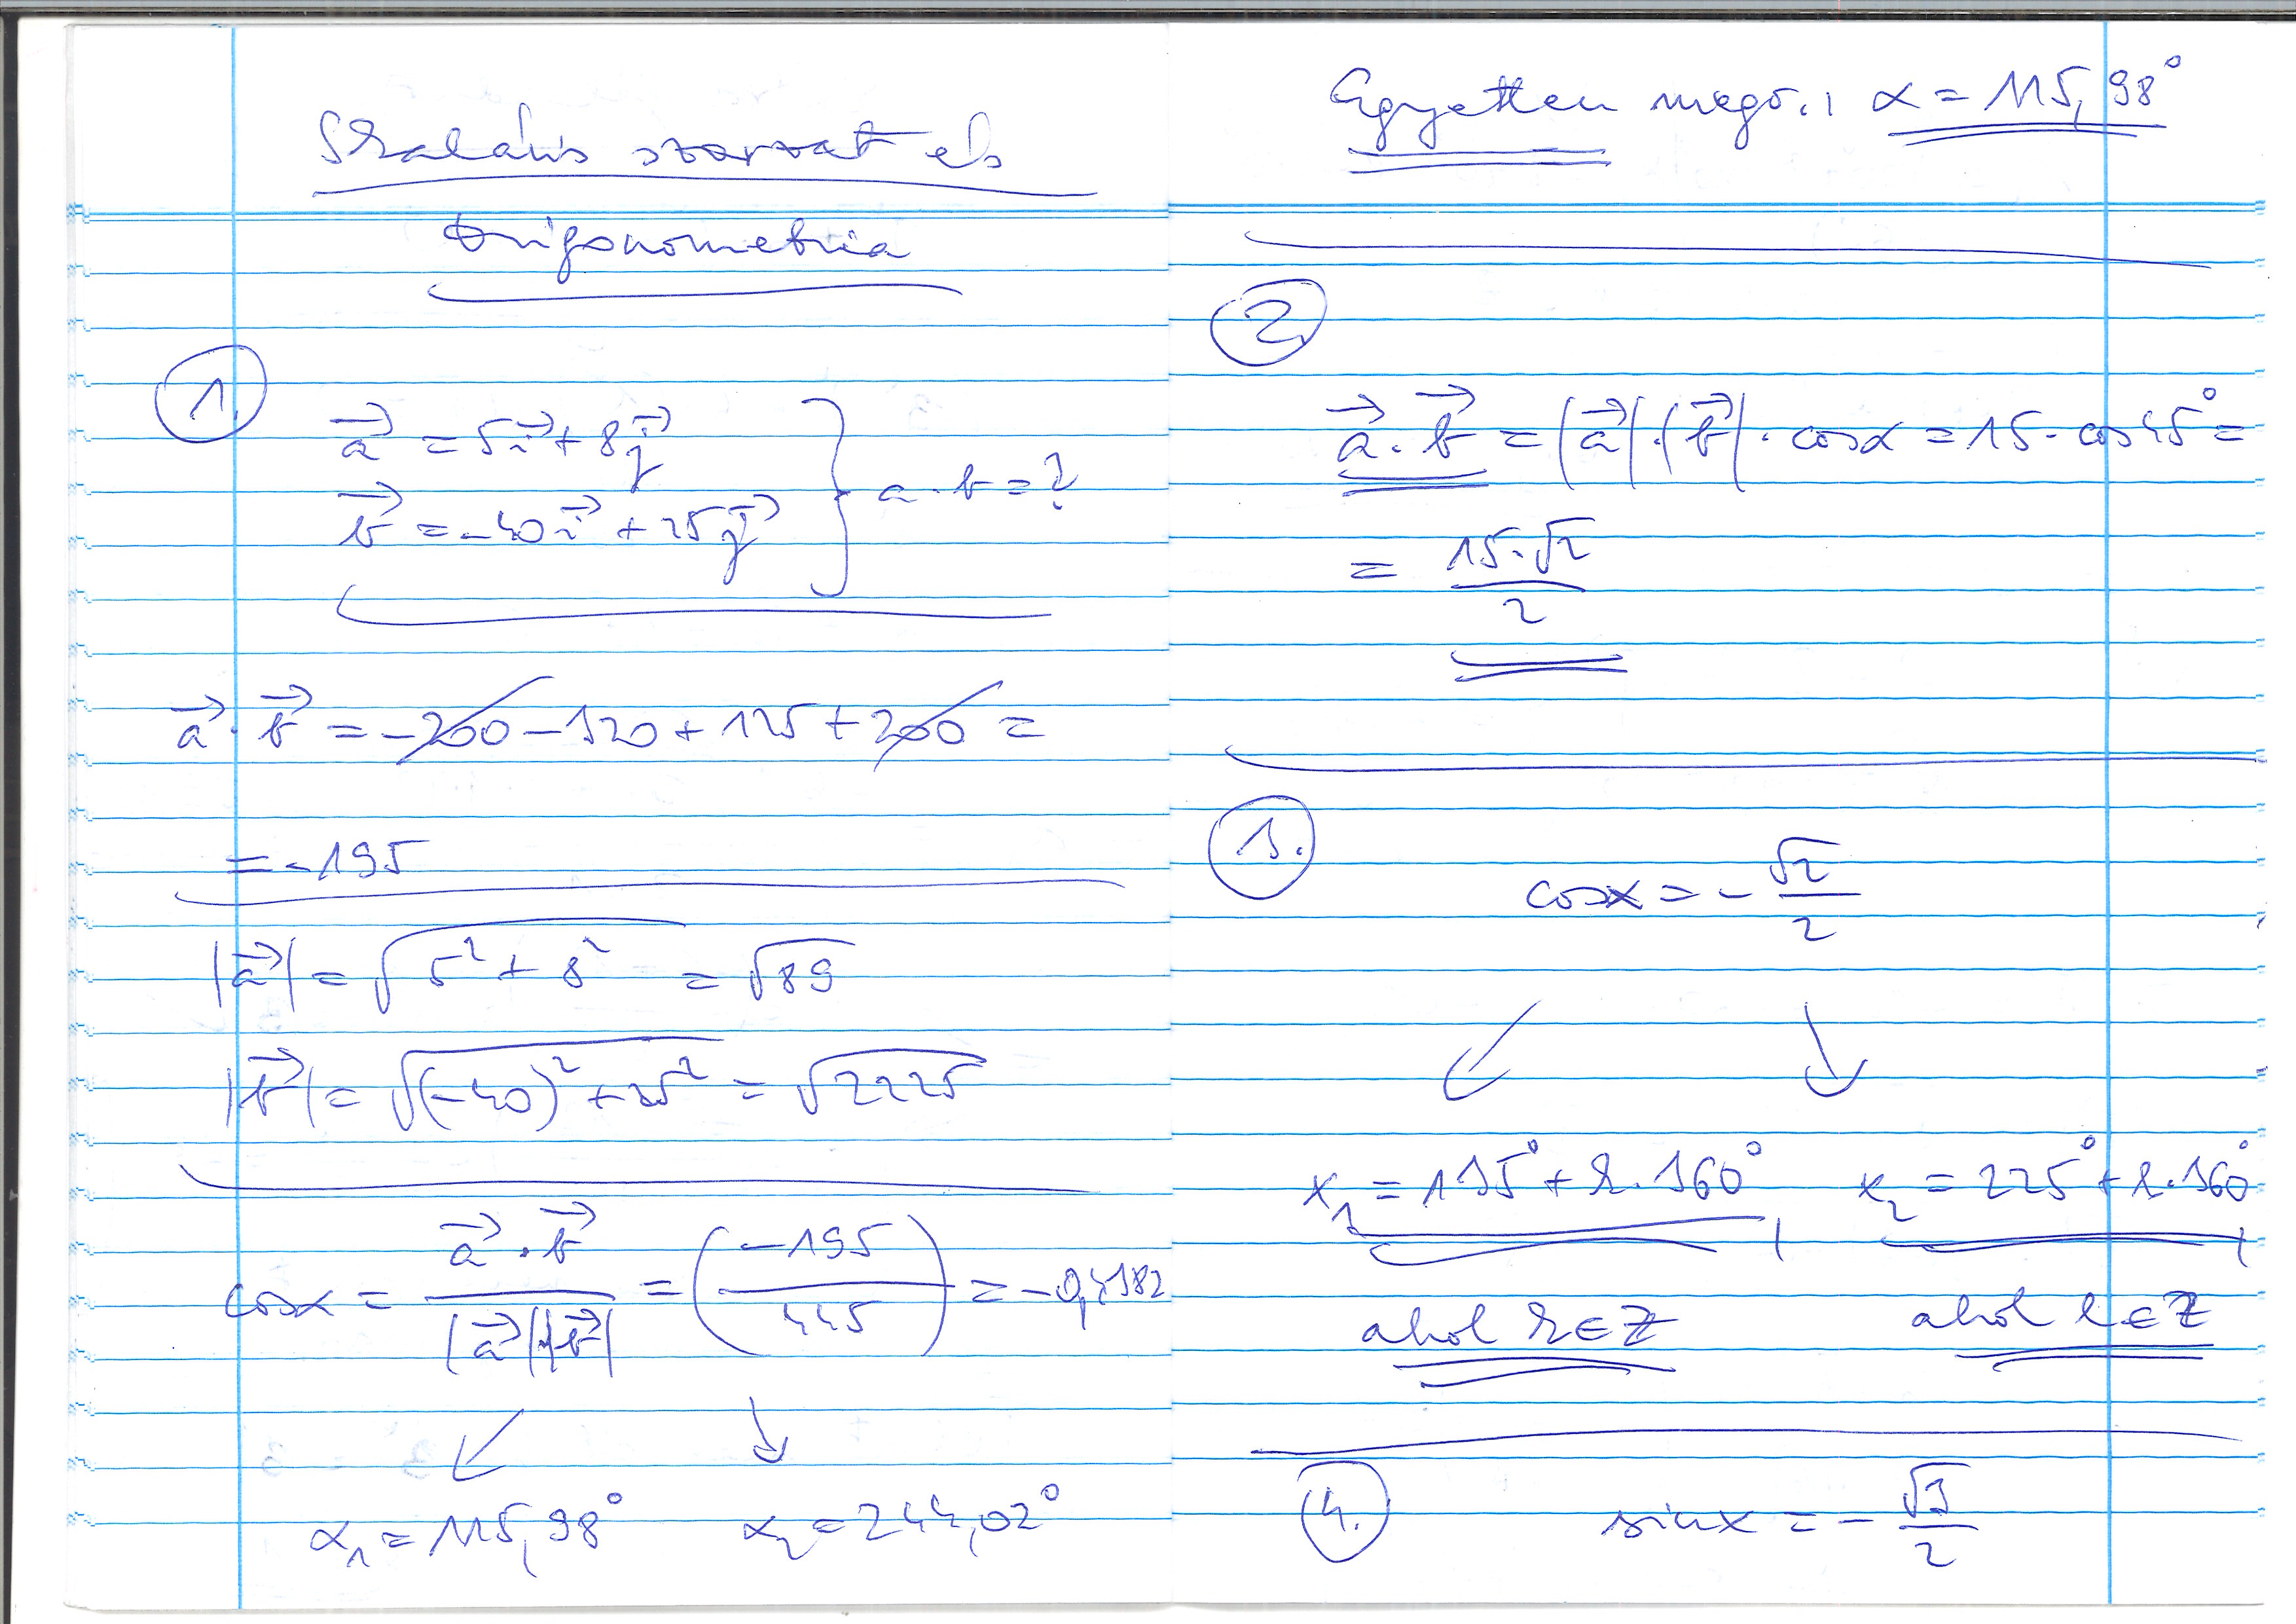 Skaláris szorzat és
trigonometria
1.
a⃗ = 5i⃗ + 8j⃗
b⃗ = -40i⃗ + 25j⃗ } a · b = ?
a⃗ · b⃗ = -200 - 320 + 125 + 200 =
= -195
|a⃗| = √(5² + 8²) = √89
|b⃗| = √((-40)² + 25²) = √2225
cosα = (a⃗ · b⃗)/(|a⃗|·|b⃗|) = (-195/445) = -0,4382
↙ ↘
α₁ = 115,98° α₂ = 244,02°
Egyetlen mego.: α = 115,98°
2.
a⃗ · b⃗ = |a⃗| · |b⃗| · cosα = 15 · cos45° =
= (15·√2)/2
3.
cosx = -√2/2
↙ ↘
x₁ = 135° + k·360°, x₂ = 225° + l·360°,
ahol k∈Z ahol l∈Z
4. sinx = -√3/2